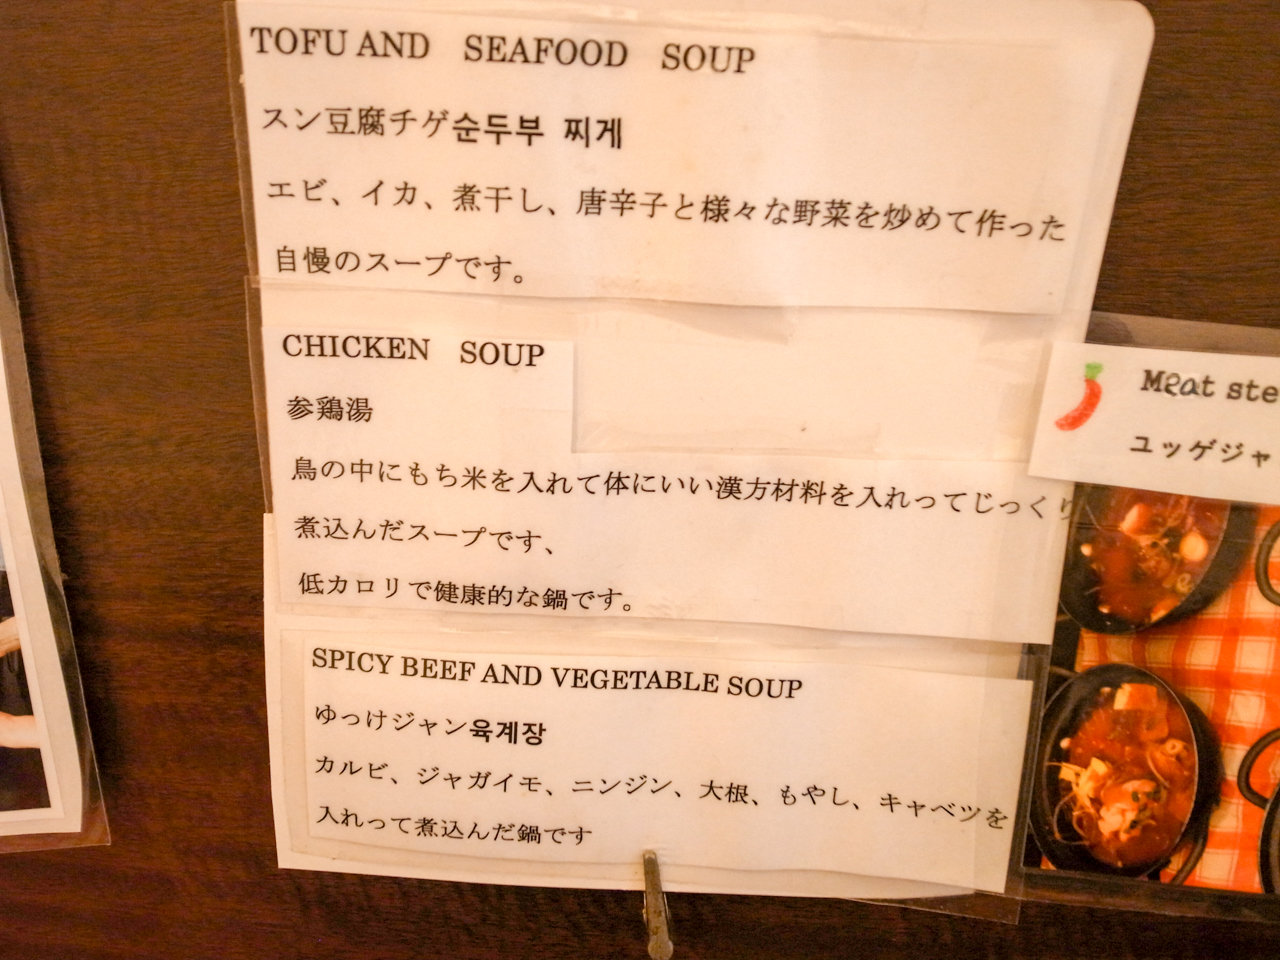 TOFU AND SEAFOOD SOUP
スン豆腐チゲ순두부 찌게
エビ、イカ、煮干し、唐辛子と様々な野菜を炒めて作った
自慢のスープです。
CHICKEN SOUP
参鶏湯
鳥の中にもち米を入れて体にいい漢方材料を入れってじっくり
煮込んだスープです、
低カロリで健康的な鍋です。
SPICY BEEF AND VEGETABLE SOUP
ゆっけジャン육계장
カルビ、ジャガイモ、ニンジン、大根、もやし、キャベツを
入れって煮込んだ鍋です
Meat ste
ユッゲジャ